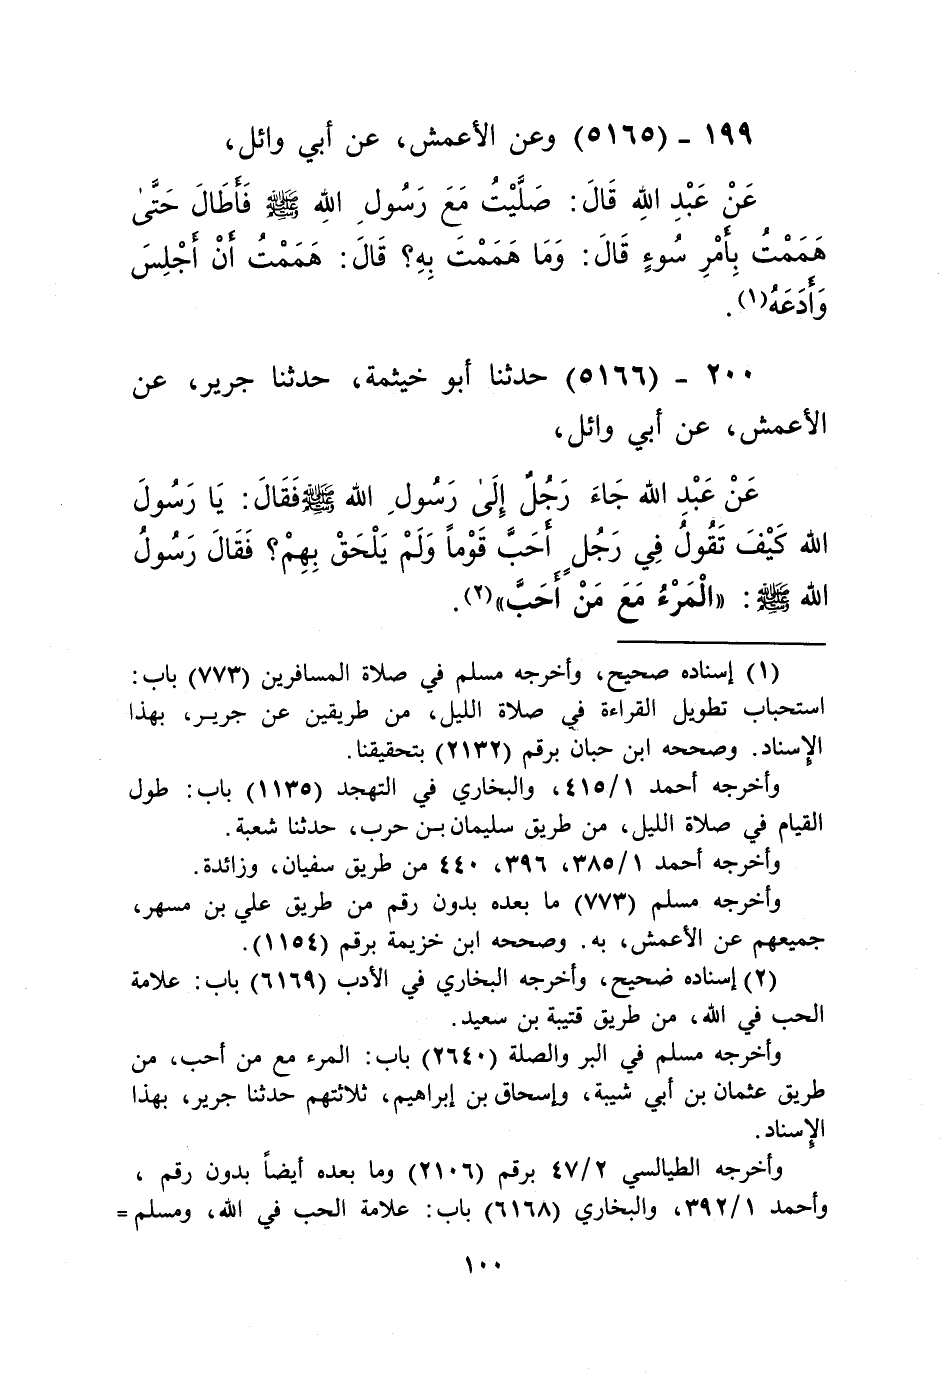 ١٩٩ - (٥١٦٥) وعن الأعمش، عن أبي وائل،
عَنْ عَبْدِ اللهِ قَالَ: صَلَّيْتُ مَعَ رَسُولِ اللهِ ﷺ فَأَطَالَ حَتَّىٰ
هَمَمْتُ بِأَمْرِ سُوءٍ قَالَ: وَمَا هَمَمْتَ بِهِ؟ قَالَ: هَمَمْتُ أَنْ أَجْلِسَ
وَأَدَعَهُ(١).
٢٠٠ - (٥١٦٦) حدثنا أبو خيثمة، حدثنا جرير، عن
الأعمش، عن أبي وائل،
عَنْ عَبْدِ الله جَاءَ رَجُلٌ إِلَىٰ رَسُولِ الله ﷺ فَقَالَ: يَا رَسُولَ
الله كَيْفَ تَقُولُ فِي رَجُلٍ أَحَبَّ قَوْماً وَلَمْ يَلْحَقْ بِهِمْ؟ فَقَالَ رَسُولُ
الله ﷺ: «الْمَرْءُ مَعَ مَنْ أَحَبَّ»(٢).
(١) إسناده صحيح، وأخرجه مسلم في صلاة المسافرين (٧٧٣) باب:
استحباب تطويل القراءة في صلاة الليل، من طريقين عن جرير، بهذا
الإسناد. وصححه ابن حبان برقم (٢١٣٢) بتحقيقنا.
وأخرجه أحمد ٤١٥/١، والبخاري في التهجد (١١٣٥) باب: طول
القيام في صلاة الليل، من طريق سليمان بن حرب، حدثنا شعبة.
وأخرجه أحمد ٣٨٥/١، ٣٩٦، ٤٤٠ من طريق سفيان، وزائدة.
وأخرجه مسلم (٧٧٣) ما بعده بدون رقم من طريق علي بن مسهر،
جميعهم عن الأعمش، به. وصححه ابن خزيمة برقم (١١٥٤).
(٢) إسناده صحيح، وأخرجه البخاري في الأدب (٦١٦٩) باب: علامة
الحب في الله، من طريق قتيبة بن سعيد.
وأخرجه مسلم في البر والصلة (٢٦٤٠) باب: المرء مع من أحب، من
طريق عثمان بن أبي شيبة، وإسحاق بن إبراهيم، ثلاثتهم حدثنا جرير، بهذا
الإسناد.
وأخرجه الطيالسي ٤٧/٢ برقم (٢١٠٦) وما بعده أيضاً بدون رقم ،
وأحمد ٣٩٢/١، والبخاري (٦١٦٨) باب: علامة الحب في الله، ومسلم =
١٠٠